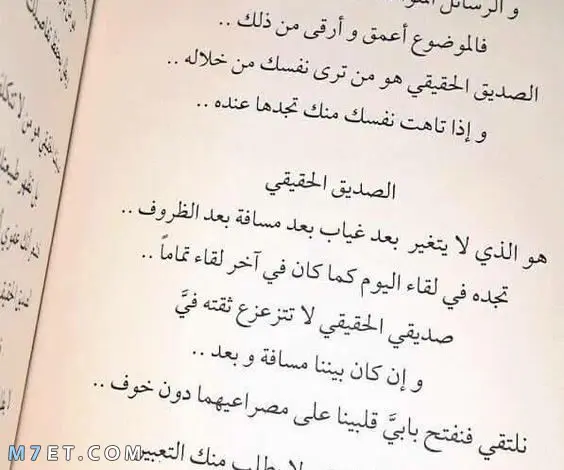 و الرسائل
فالموضوع أعمق و أرقى من ذلك ..
الصديق الحقيقي هو من ترى نفسك من خلاله ..
و إذا تاهت نفسك منك تجدها عنده ..
الصديق الحقيقي
هو الذي لا يتغير بعد غياب بعد مسافة بعد الظروف ..
تجده في لقاء اليوم كما كان في آخر لقاء تماماً ..
صديقي الحقيقي لا تتزعزع ثقته فيَّ
و إن كان بيننا مسافة و بعد ..
نلتقي فنفتح بابيَّ قلبينا على مصراعيهما دون خوف ..
لا يطلب منك التعبير
M7ET.COM